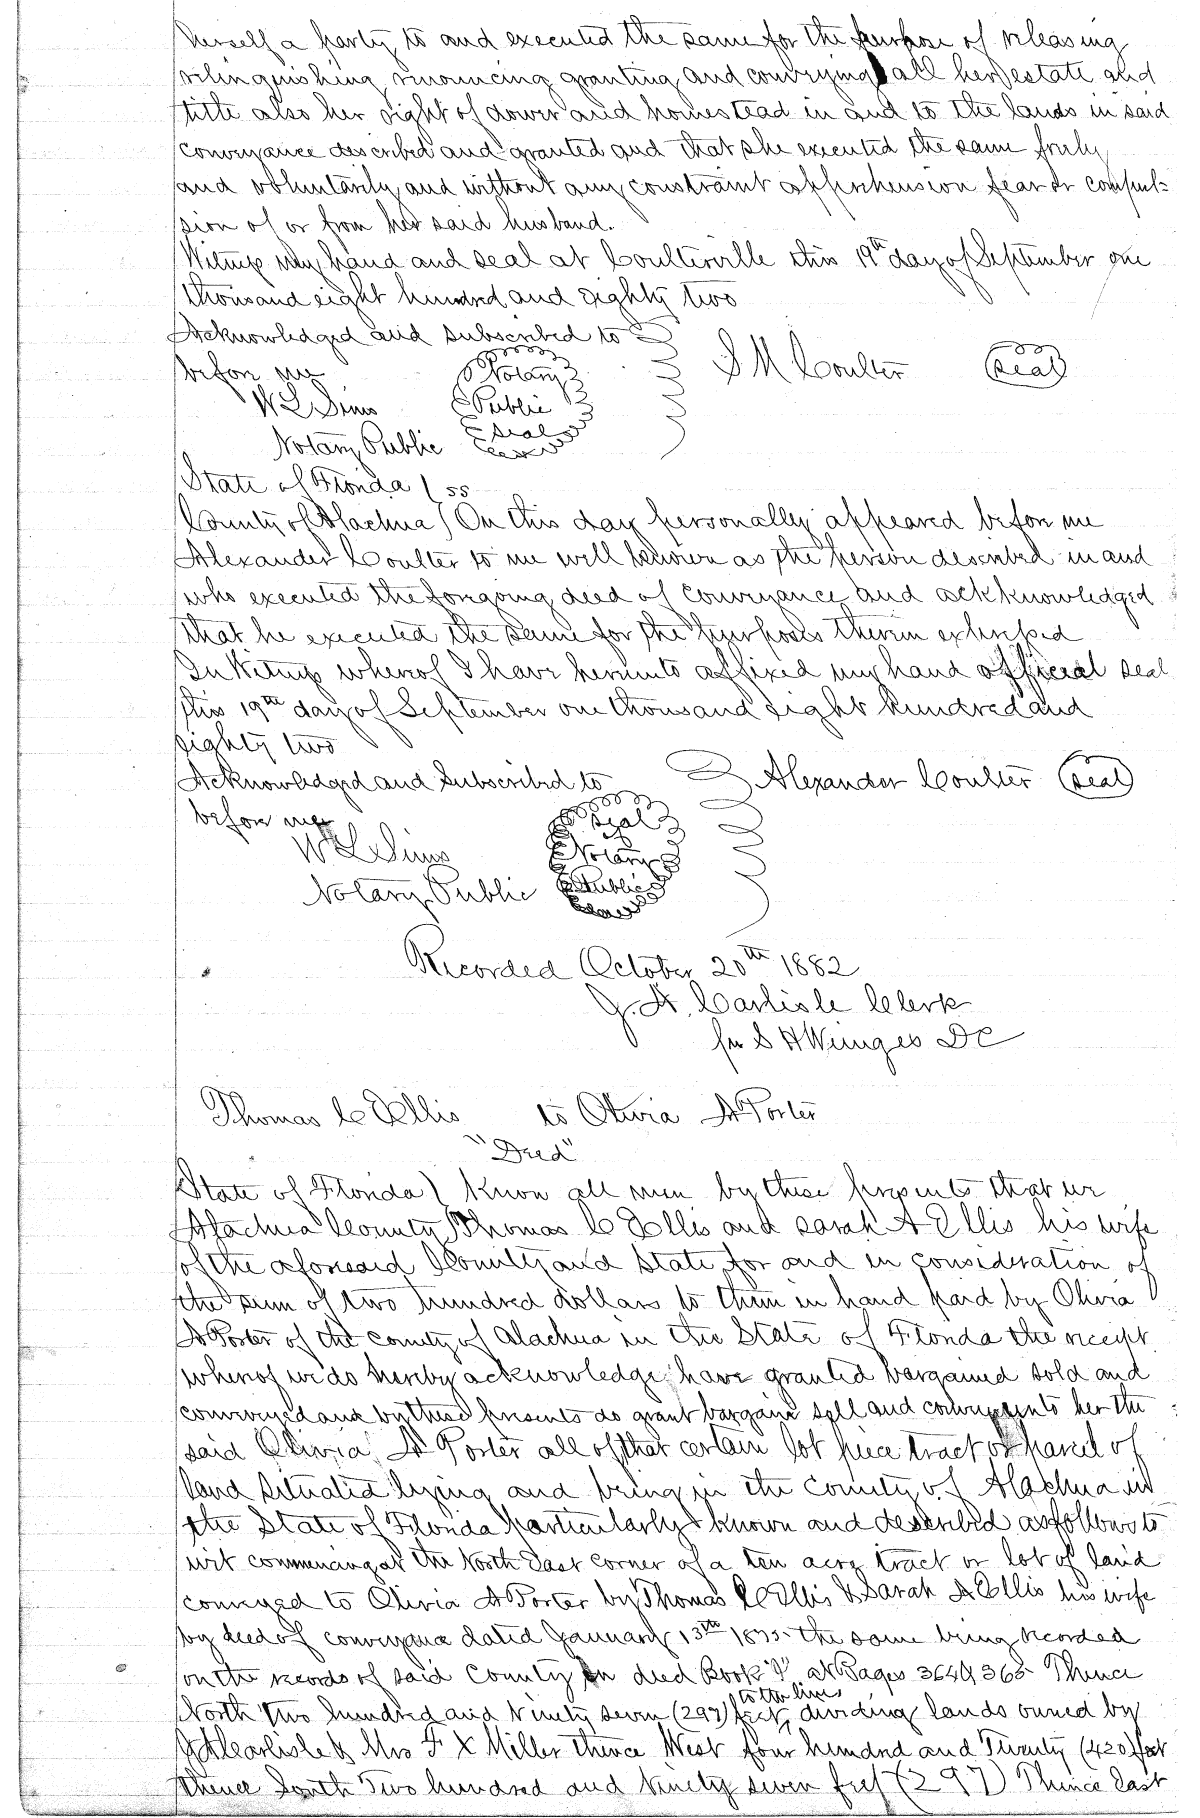 herself a party to and executed the same for the purpose of releasing
relinquishing renouncing granting and conveying all her estate and
title also her right of dower and homestead in and to the lands in said
conveyance described and granted and that she executed the same freely
and voluntarily and without any constraint apprehension fear or compul=
sion of or from her said husband.
Witness my hand and seal at Coulterville this 19th day of September one
thousand eight hundred and eighty two
Acknowledged and subscribed to
before me
S M Coulter seal
Notary Public Seal
W L Sims
Notary Public
State of Florida ( ss
County of Alachua ) On this day personally appeared before me
Alexander Coulter to me well known as the person described in and
who executed the foregoing deed of conveyance and ackknowledged
that he executed the same for the purposes therein expressed
In Witness whereof I have hereunto affixed my hand official seal
this 19th day of September one thousand eight hundred and
eighty two
Acknowledged and Subscribed to
Alexander Coulter seal
before me
W L Sims
Notary Public
Seal of Notary Public
Recorded October 20th 1882
J. A. Carlisle Clerk
per S H Wienges DC
Thomas C Ellis to Olivia A Porter
"Deed"
State of Florida ) Know all men by these presents that we
Alachua County ) Thomas C Ellis and Sarah A Ellis his wife
of the aforesaid County and State for and in consideration of
the sum of two hundred dollars to them in hand paid by Olivia
A Porter of the county of Alachua in the State of Florida the receipt
whereof we do hereby acknowledge have granted bargained sold and
conveyed and by these presents do grant bargain sell and convey unto her the
said Olivia A Porter all of that certain lot piece tract or parcel of
land situated lying and being in the County of Alachua in
the State of Florida particularly known and described as follows to
wit commencing at the North East corner of a ten acre tract or lot of land
conveyed to Olivia A Porter by Thomas C Ellis & Sarah A Ellis his wife
by deed of conveyance dated January 13th 1875 the same being recorded
on the records of said County in deed Book "I" at Pages 364 & 365 Thence
to the line
North two hundred and Ninety seven (297) feet dividing lands owned by
J A Carlisle & Mrs F X Miller thence West four hundred and Twenty (420) feet
thence South Two hundred and Ninety seven feet (297) Thence East